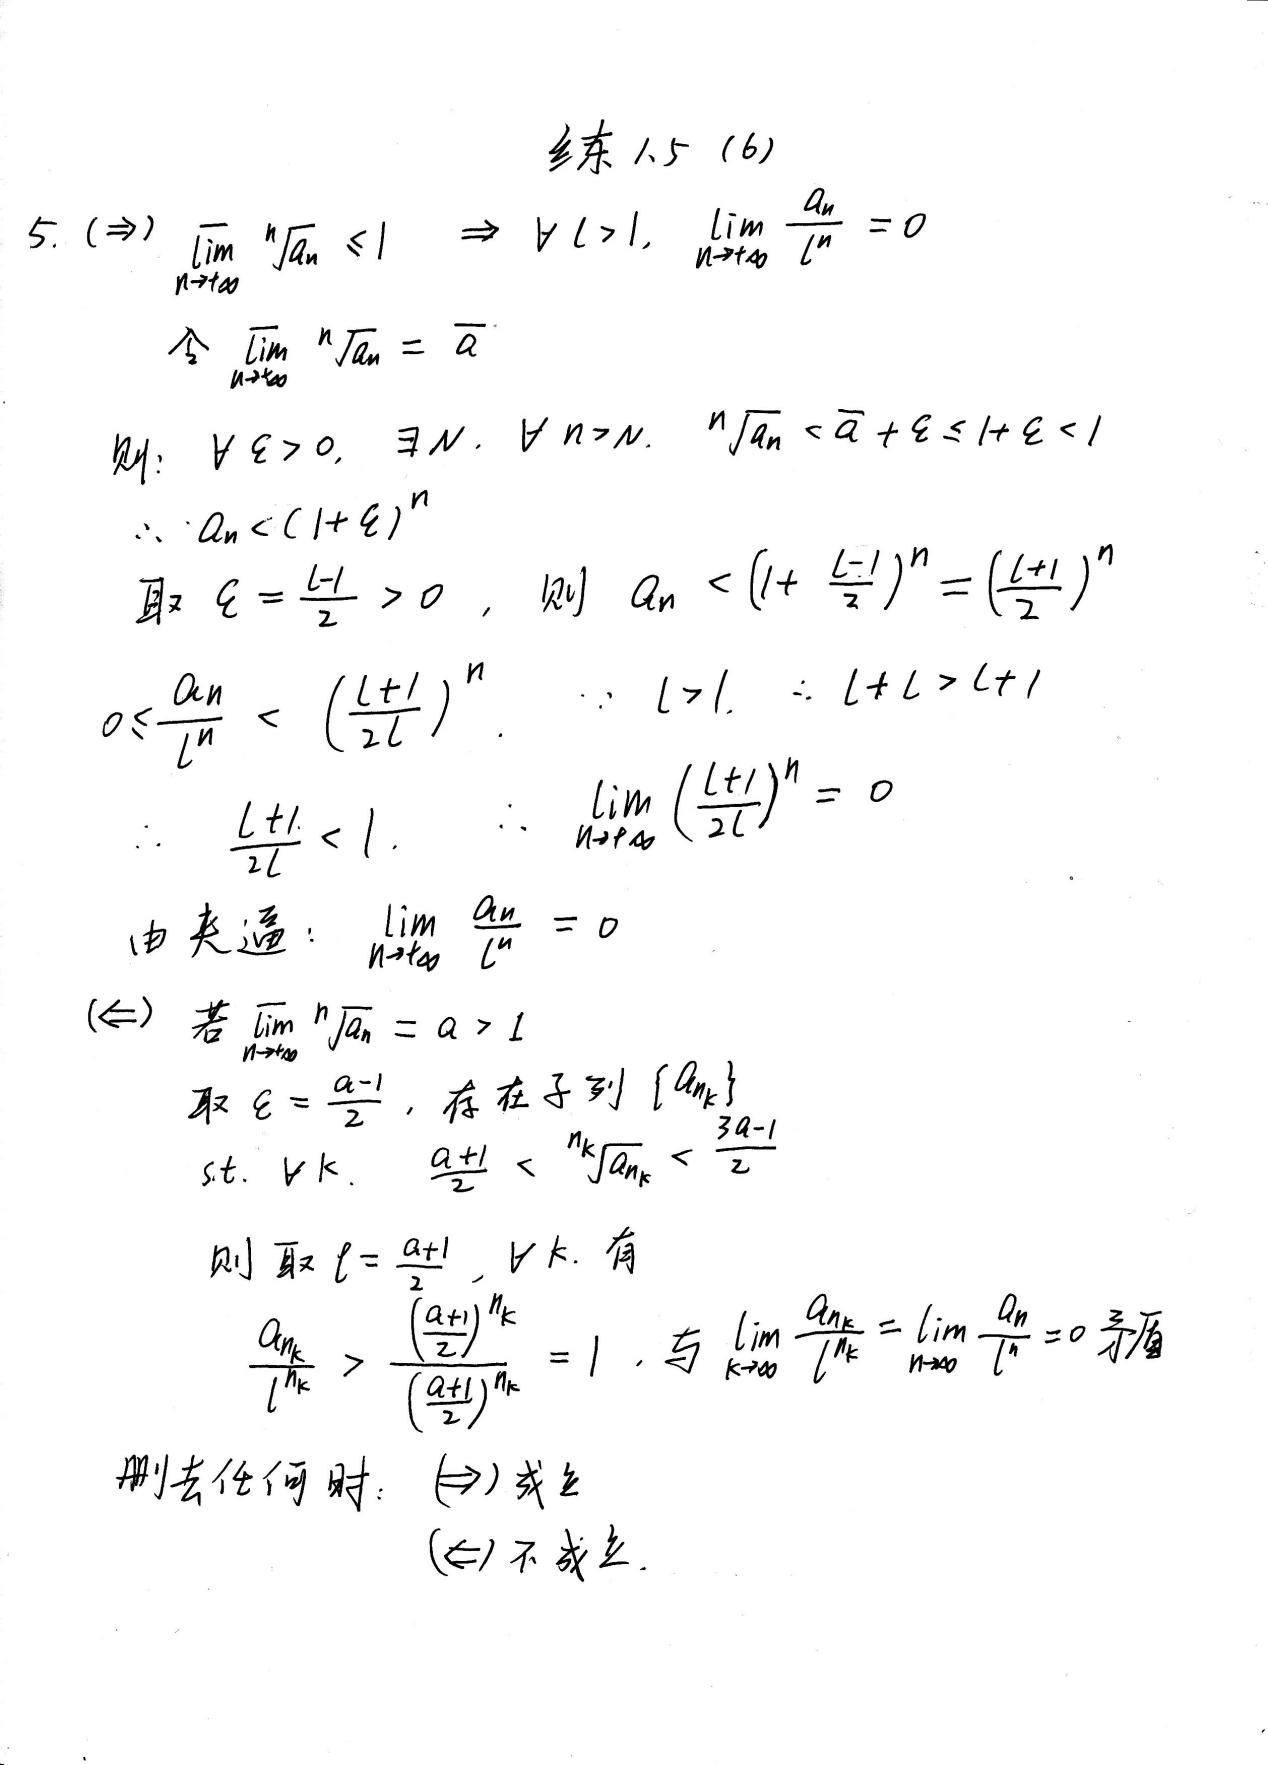 练1.5 (6)
5. (⇒) \overline{lim}_{n→+∞} ⁿ√a_n ≤ 1 ⇒ ∀ l>1, lim_{n→+∞} a_n/l^n = 0
令 \overline{lim}_{n→+∞} ⁿ√a_n = \overline{a}
则: ∀ ε>0, ∃N. ∀ n>N. ⁿ√a_n < \overline{a} + ε ≤ 1+ε < 1
∴ a_n < (1+ε)^n
取 ε = (l-1)/2 > 0, 则 a_n < (1+ (l-1)/2)^n = ((l+1)/2)^n
0 ≤ a_n/l^n < ((l+1)/2l)^n. ∵ l>1. ∴ l+l > l+1
∴ (l+1)/2l < 1. ∴ lim_{n→+∞} ((l+1)/2l)^n = 0
由夹逼: lim_{n→+∞} a_n/l^n = 0
(⇐) 若 \overline{lim}_{n→+∞} ⁿ√a_n = a > 1
取 ε = (a-1)/2, 存在子列 {a_{n_k}}
s.t. ∀ k. (a+1)/2 < ^{n_k}√a_{n_k} < (3a-1)/2
则取 l = (a+1)/2, ∀ k. 有
a_{n_k}/l^{n_k} > ((a+1)/2)^{n_k}/((a+1)/2)^{n_k} = 1. 与 lim_{k→∞} a_{n_k}/l^{n_k} = lim_{n→∞} a_n/l^n = 0 矛盾
删去任何时: (⇒) 成立
(⇐) 不成立.